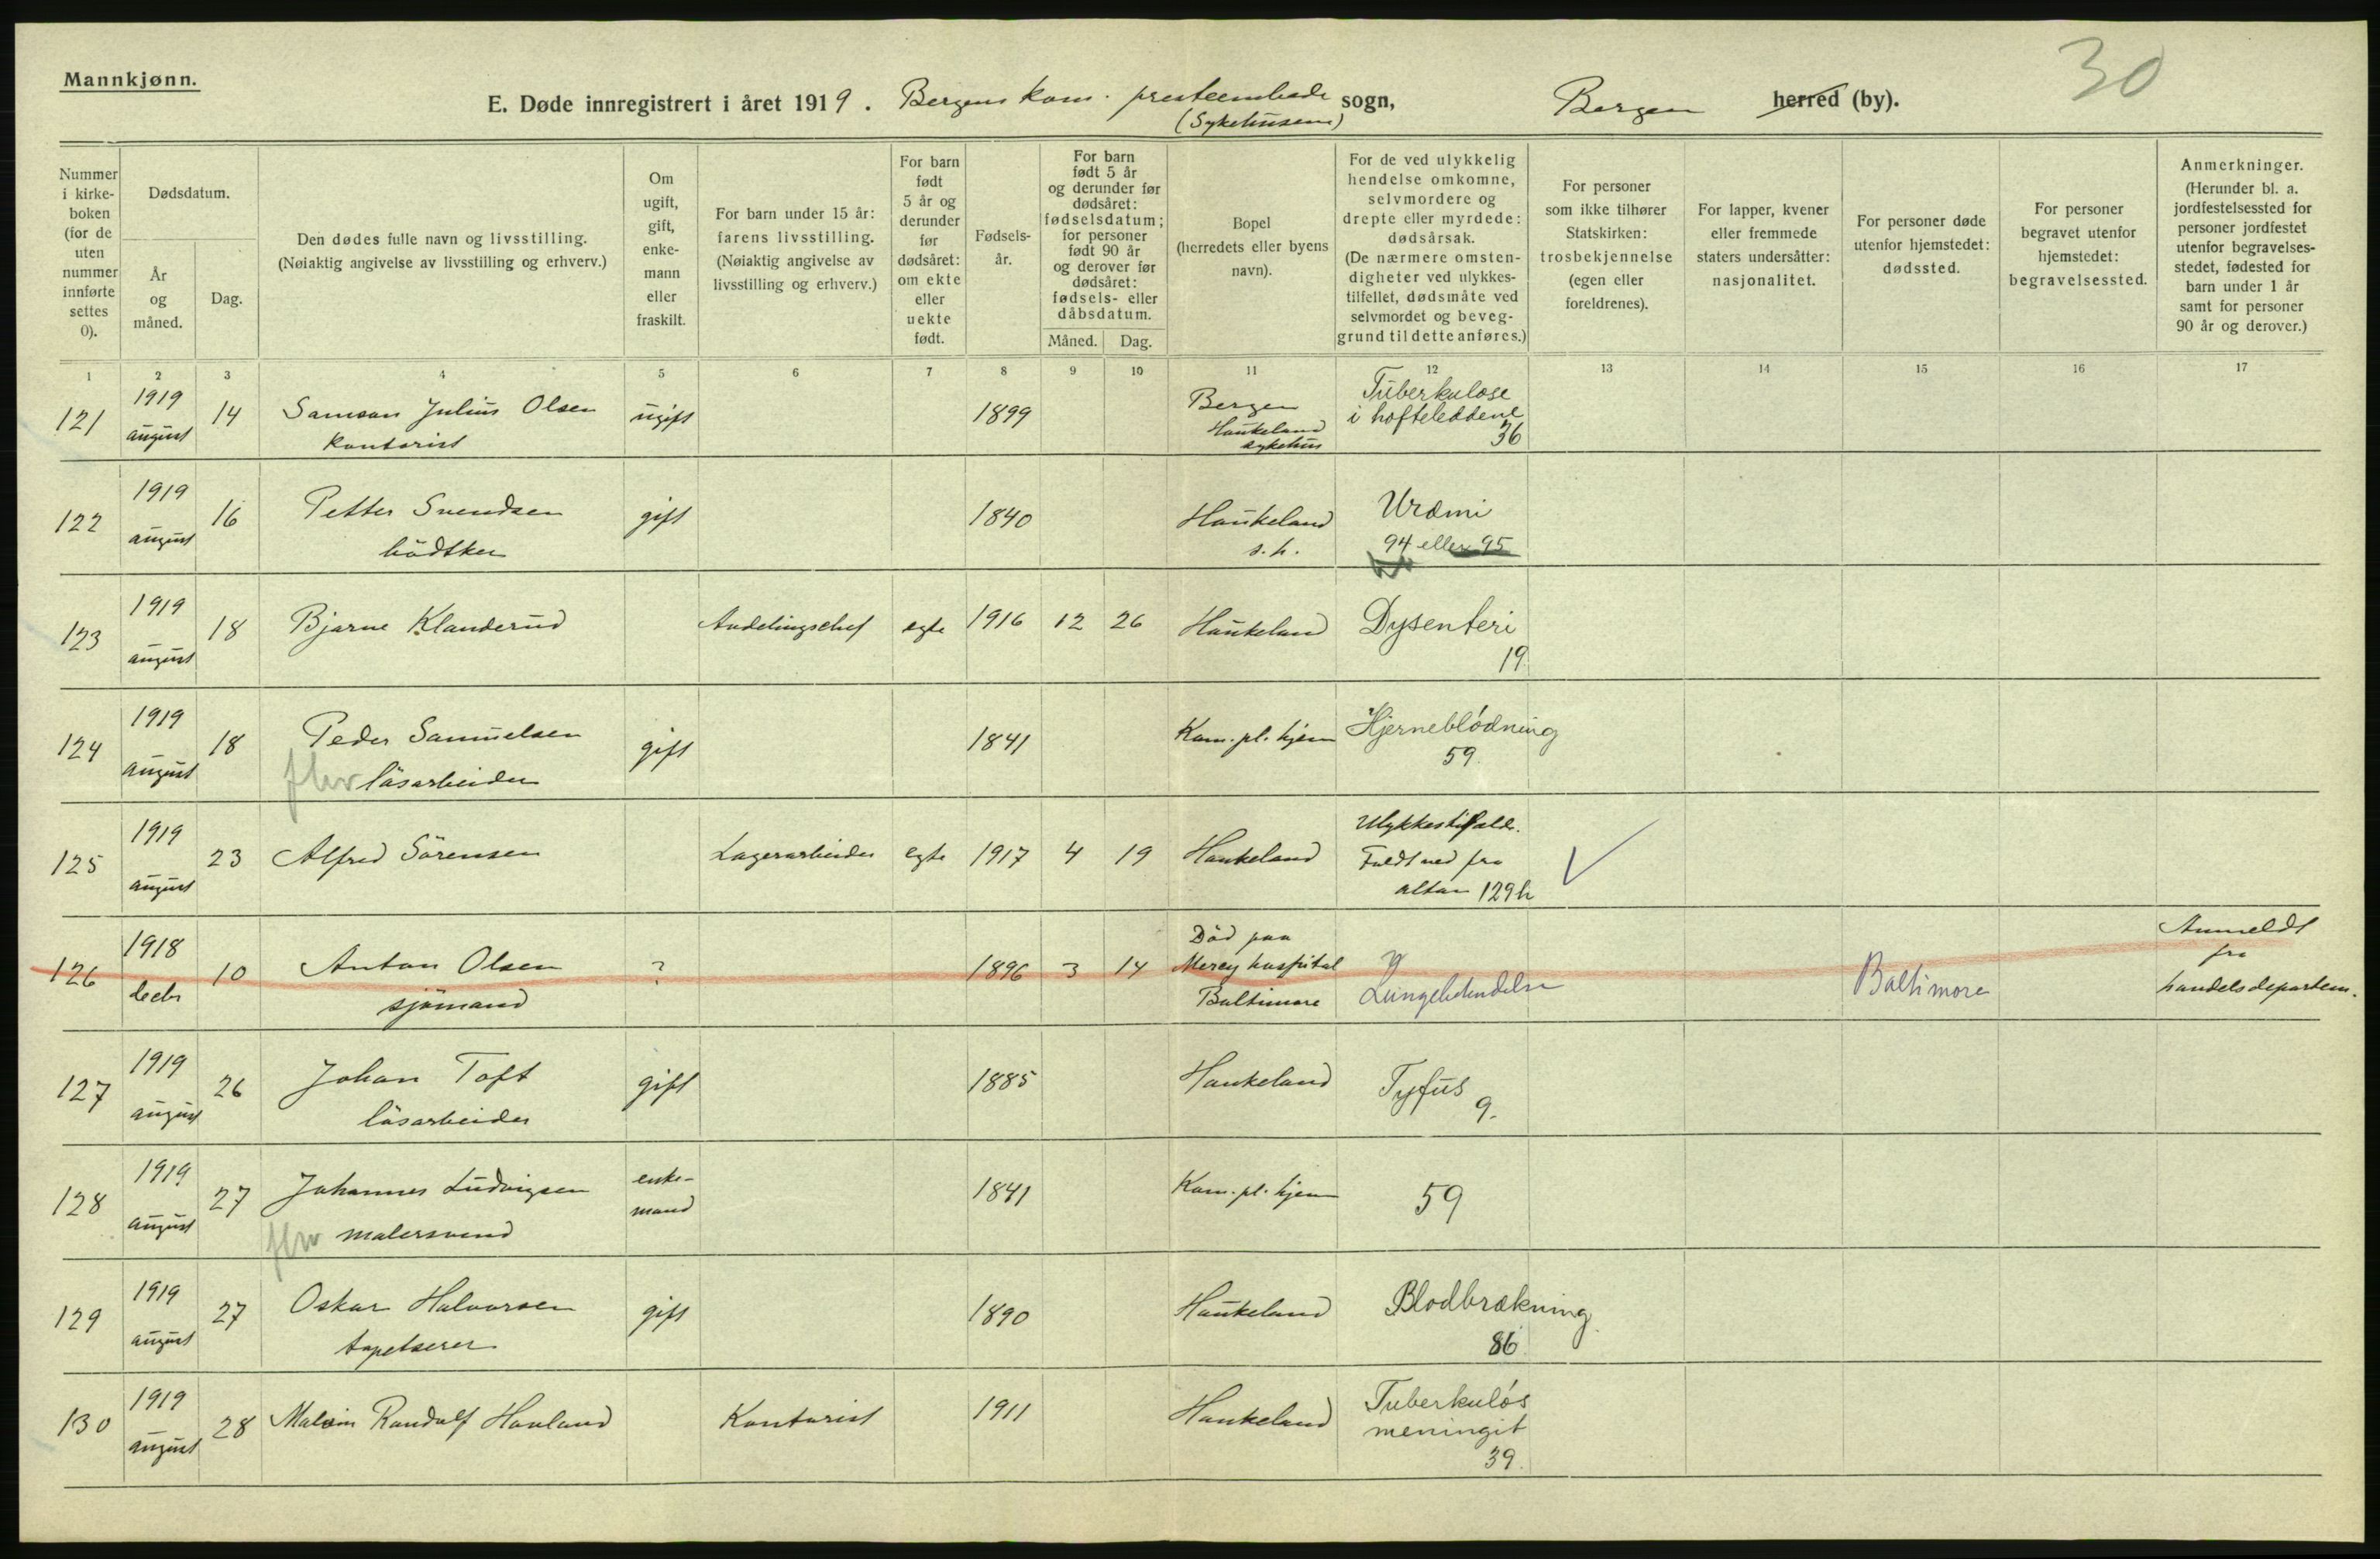 Mannkjønn.
30
E. Døde innregistrert i året 1919. Bergens kom. presteembede sogn, Bergen herred (by).
(Sykehusene)
Nummer i kirke-boken (for de uten nummer innførte settes 0).
Dødsdatum.
År og måned.
Dag.
Den dødes fulle navn og livsstilling.
(Nøiaktig angivelse av livsstilling og erhverv.)
Om ugift, gift, enke-mann eller fraskilt.
For barn under 15 år: farens livsstilling.
(Nøiaktig angivelse av livsstilling og erhverv.)
For barn født 5 år og derunder før dødsåret: om ekte eller uekte født.
Fødsels-år.
For barn født 5 år og derunder før dødsåret: fødselsdatum; for personer født 90 år og derover før dødsåret: fødsels- eller dåbsdatum.
Måned. Dag.
Bopel
(herredets eller byens navn).
For de ved ulykkelig hendelse omkomne, selvmordere og drepte eller myrdede: dødsårsak.
(De nærmere omsten-digheter ved ulykkes-tilfellet, dødsmåte ved selvmordet og beveg-grund til dette anføres.)
For personer som ikke tilhører Statskirken: trosbekjennelse (egen eller foreldrenes).
For lapper, kvener eller fremmede staters undersåtter: nasjonalitet.
For personer døde utenfor hjemstedet: dødssted.
For personer begravet utenfor hjemstedet: begravelsessted.
Anmerkninger.
(Herunder bl. a. jordfestelsessted for personer jordfestet utenfor begravelses-stedet, fødested for barn under 1 år samt for personer 90 år og derover.)
1 2 3 4 5 6 7 8 9 10 11 12 13 14 15 16 17
121 1919 august 14 Samson Julius Olsen ugift 1899 Bergen Tuberkulose
kontorist Haukeland sykehus i hofteleddene 36
122 1919 august 16 Petter Svendsen gift 1840 Haukeland Uræmi
bödtker s. h. 94 eller 95
123 1919 august 18 Bjarne Klanderud Avdelingschef egte 1916 12 26 Haukeland Dysenteri
19
124 1919 august 18 Peder Samuelsen gift 1841 Kom. pl. hjem Hjerneblödning
fhv läsarbeider 59.
125 1919 august 23 Alfred Sörensen Lagerarbeider egte 1917 4 19 Haukeland Ulykkestilfælde.
Faldt ned fra
altan 129h
126 1918 decbr 10 Anton Olsen ? 1896 3 14 Död paa Mercy hospital Baltimore Lungebetendelse Baltimore Anmeldt
sjömand fra
handelsdepartem.
127 1919 august 26 Johan Toft gift 1885 Haukeland Tyfus
läsarbeider 9.
128 1919 august 27 Johannes Ludvigsen enke-mand 1841 Kom. pl. hjem 59
fhv malersvend
129 1919 august 27 Oskar Halvorsen gift 1890 Haukeland Blodbrækning
tapetserer 86
130 1919 august 28 Malvin Randulf Hauland Kontorist 1911 Haukeland Tuberkulös
meningit
39.